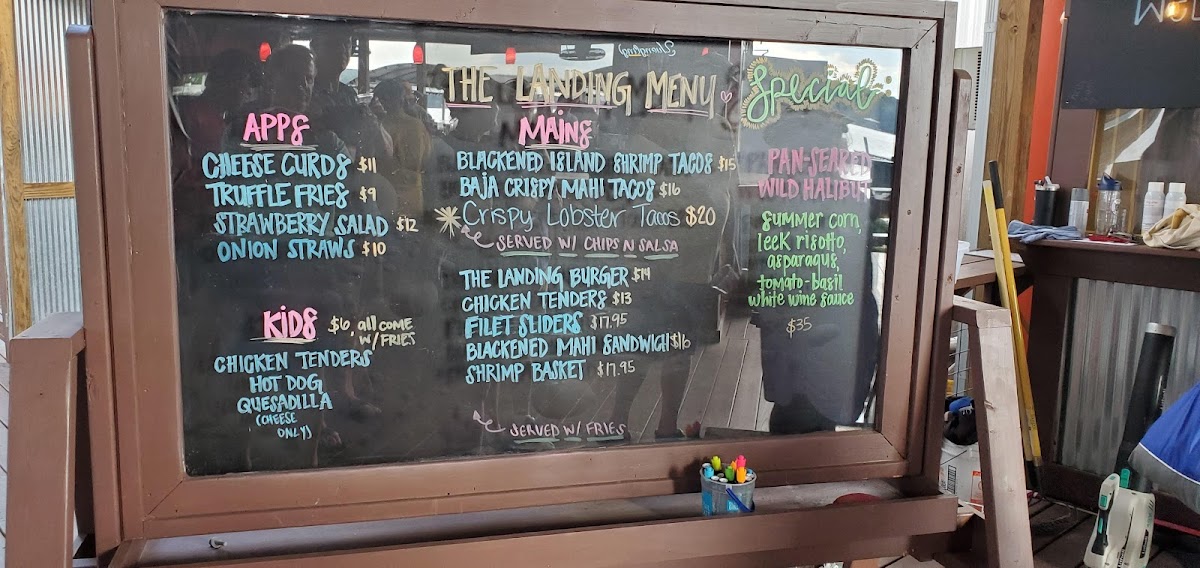 THE LANDING MENU
APPS
CHEESE CURDS $11
TRUFFLE FRIES $9
STRAWBERRY SALAD $12
ONION STRAWS $10
KIDS $6, all come
w/FRIES
CHICKEN TENDERS
HOT DOG
QUESADILLA
(CHEESE
ONLY)
MAINS
BLACKENED ISLAND SHRIMP TACOS $15
BAJA CRISPY MAHI TACOS $16
Crispy Lobster Tacos $20
SERVED W/ CHIPS N SALSA
THE LANDING BURGER $14
CHICKEN TENDERS $13
FILET SLIDERS $17.95
BLACKENED MAHI SANDWICH $16
SHRIMP BASKET $17.95
SERVED W/ FRIES
Special
PAN-SEARED
WILD HALIBUT
summer corn,
leek risotto,
asparagus,
tomato-basil
white wine sauce
$35